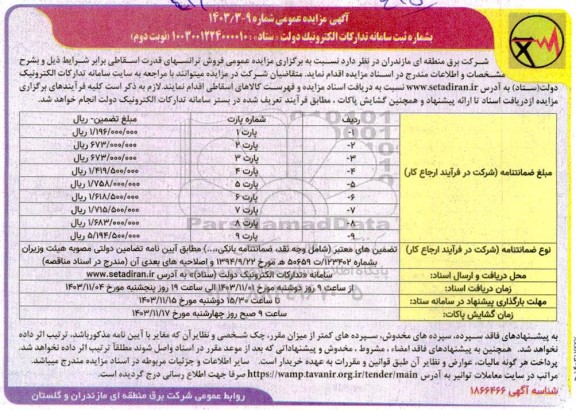 آگهی مزایده عمومی شماره ۹-۱۴۰۳/۳
بشماره ثبت سامانه تدارکات الکترونیک دولت « ستاد» : ۱۰۰۳۰۰۱۲۲۴۰۰۰۰۱۰ (نوبت دوم)
شرکت برق منطقه ای مازندران در نظر دارد نسبت به برگزاری مزایده عمومی فروش ترانسهای قدرت اسقاطی برابر شرایط ذیل و بشرح
مشخصات و اطلاعات مندرج در اسناد مزایده اقدام نماید. متقاضیان شرکت در مزایده میتوانند با مراجعه به سایت سامانه تدارکات الکترونیک
دولت(ستاد) به آدرس www.setadiran.ir نسبت به دریافت اسناد مزایده و فهرست کالاهای اسقاطی اقدام نمایند.لازم به ذکر است کلیه فرآیندهای برگزاری
مزایده ازدریافت اسناد تا ارائه پیشنهاد و همچنین گشایش پاکات ، مطابق فرآیند تعریف شده در بستر سامانه تدارکات الکترونیک دولت انجام خواهد شد.
مبلغ ضمانتنامه (شرکت در فرآیند ارجاع کار)
ردیف شماره پارت مبلغ تضمین- ریال
۱- پارت ۱ ۱/۱۹۶/۰۰۰/۰۰۰ ریال
۲- پارت ۲ ۶۷۳/۰۰۰/۰۰۰ ریال
۳- پارت ۳ ۶۷۳/۰۰۰/۰۰۰ ریال
۴- پارت ۴ ۱/۴۱۹/۵۰۰/۰۰۰ ریال
۵- پارت ۵ ۱/۷۵۸/۰۰۰/۰۰۰ ریال
۶- پارت ۶ ۱/۶۱۸/۵۰۰/۰۰۰ ریال
۷- پارت ۷ ۱/۷۱۵/۵۰۰/۰۰۰ ریال
۸- پارت ۸ ۱/۶۸۳/۰۰۰/۰۰۰ ریال
۹- پارت ۹ ۵/۱۹۴/۵۰۰/۰۰۰ ریال
نوع ضمانتنامه (شرکت در فرآیند ارجاع کار) تضمین های معتبر (شامل وجه نقد، ضمانتنامه بانکی،...) مطابق آیین نامه تضامین دولتی مصوبه هیئت وزیران
بشماره ۱۲۳۴۰۲/ت ۵۰۶۵۹ هـ مورخ ۱۳۹۴/۹/۲۲ و اصلاحیه های بعدی آن (مندرج در اسناد مناقصه)
محل دریافت و ارسال اسناد: سامانه «تدارکات الکترونیک دولت (ستاد)» به آدرس www.setadiran.ir
زمان دریافت اسناد: از ساعت ۹ روز دوشنبه مورخ ۱۴۰۳/۱۱/۰۱ الی ساعت ۱۹ روز پنجشنبه مورخ ۱۴۰۳/۱۱/۰۴
مهلت بارگذاری پیشنهاد در سامانه ستاد: تا ساعت ۱۵/۳۰ دوشنبه مورخ ۱۴۰۳/۱۱/۱۵
زمان گشایش پاکات: ساعت ۹ صبح روز چهارشنبه مورخ ۱۴۰۳/۱۱/۱۷
به پیشنهادهای فاقد سپرده، سپرده های مخدوش، سپرده های کمتر از میزان مقرر، چک شخصی و نظایر آن که مغایر با آیین نامه مذکورباشد، ترتیب اثر داده
نخواهد شد. همچنین به پیشنهادهای فاقد امضاء ، مشروط ، مخدوش و پیشنهاداتی که بعد از موعد مقرر در اسناد واصل شوند مطلقاً ترتیب اثر داده نخواهد شد.
پرداخت هر گونه مالیات، عوارض و نظایر آن طبق قوانین و مقررات به عهده خریدار است. سایر اطلاعات و جزئیات مربوطه در اسناد مزایده مندرج میباشد.
مراتب در سایت معاملات توانیر به آدرس https://wamp.tavanir.org.ir/tender/main صرفا جهت اطلاع رسانی درج گردیده است.
شناسه آگهی ۱۸۶۶۴۶۶
روابط عمومی شرکت برق منطقه ای مازندران و گلستان